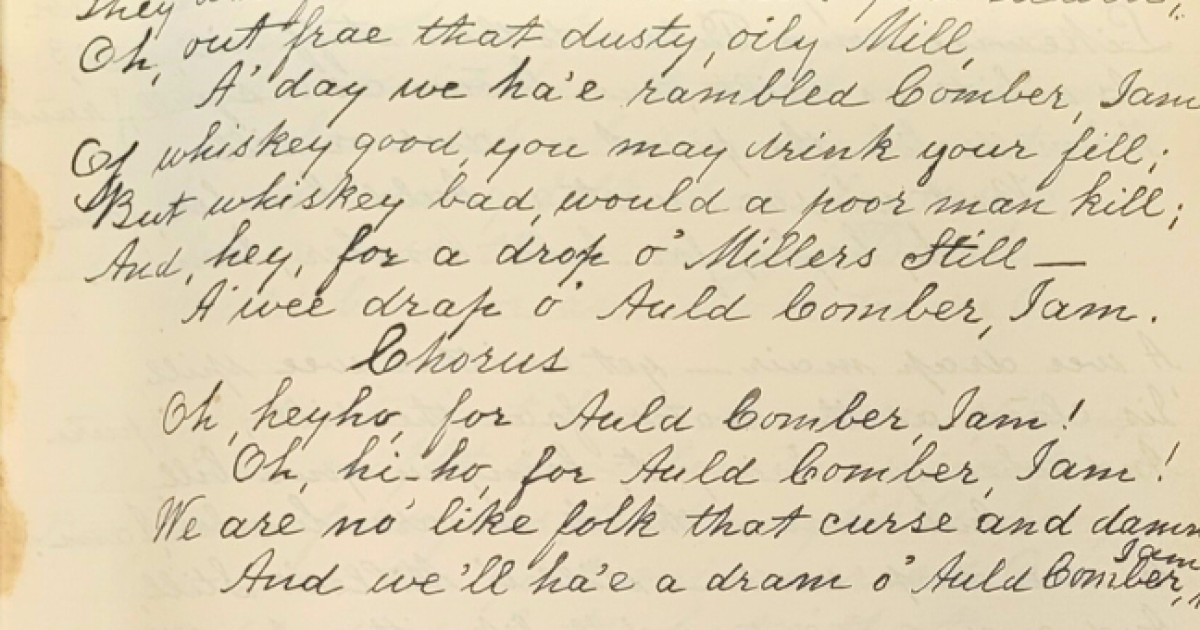 They
Oh, out frae that dusty, oily Mill,
A' day we ha'e rambled Comber, Iam
Of whiskey good, you may drink your fill;
But whiskey bad, would a poor man kill;
And, hey, for a drop o' Millers Still —
A' wee drap o' Auld Comber, Iam.
Chorus
Oh, heyho, for Auld Comber, Iam!
Oh, hi-ho, for Auld Comber, Iam!
We are no' like folk that curse and damn
And we'll ha'e a dram o' Auld Comber, Iam